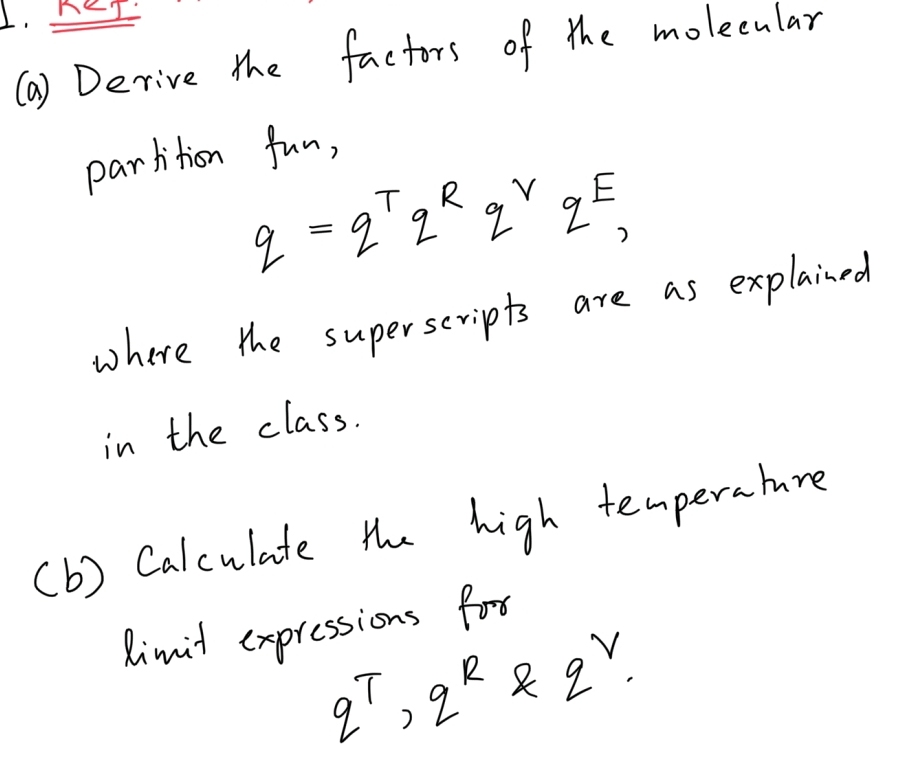 1. Ref.
(a) Derive the factors of the molecular
partition fun,
q = q^T q^R q^V q^E,
where the superscripts are as explained
in the class.
(b) Calculate the high temperature
limit expressions for
q^T, q^R & q^V.